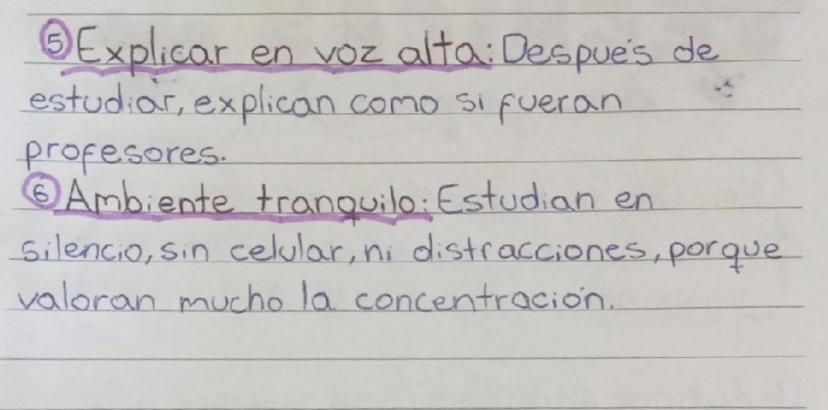 ⑤ Explicar en voz alta: Después de
estudiar, explican como si fueran
profesores.
⑥ Ambiente tranquilo: Estudian en
silencio, sin celular, ni distracciones, porque
valoran mucho la concentración.